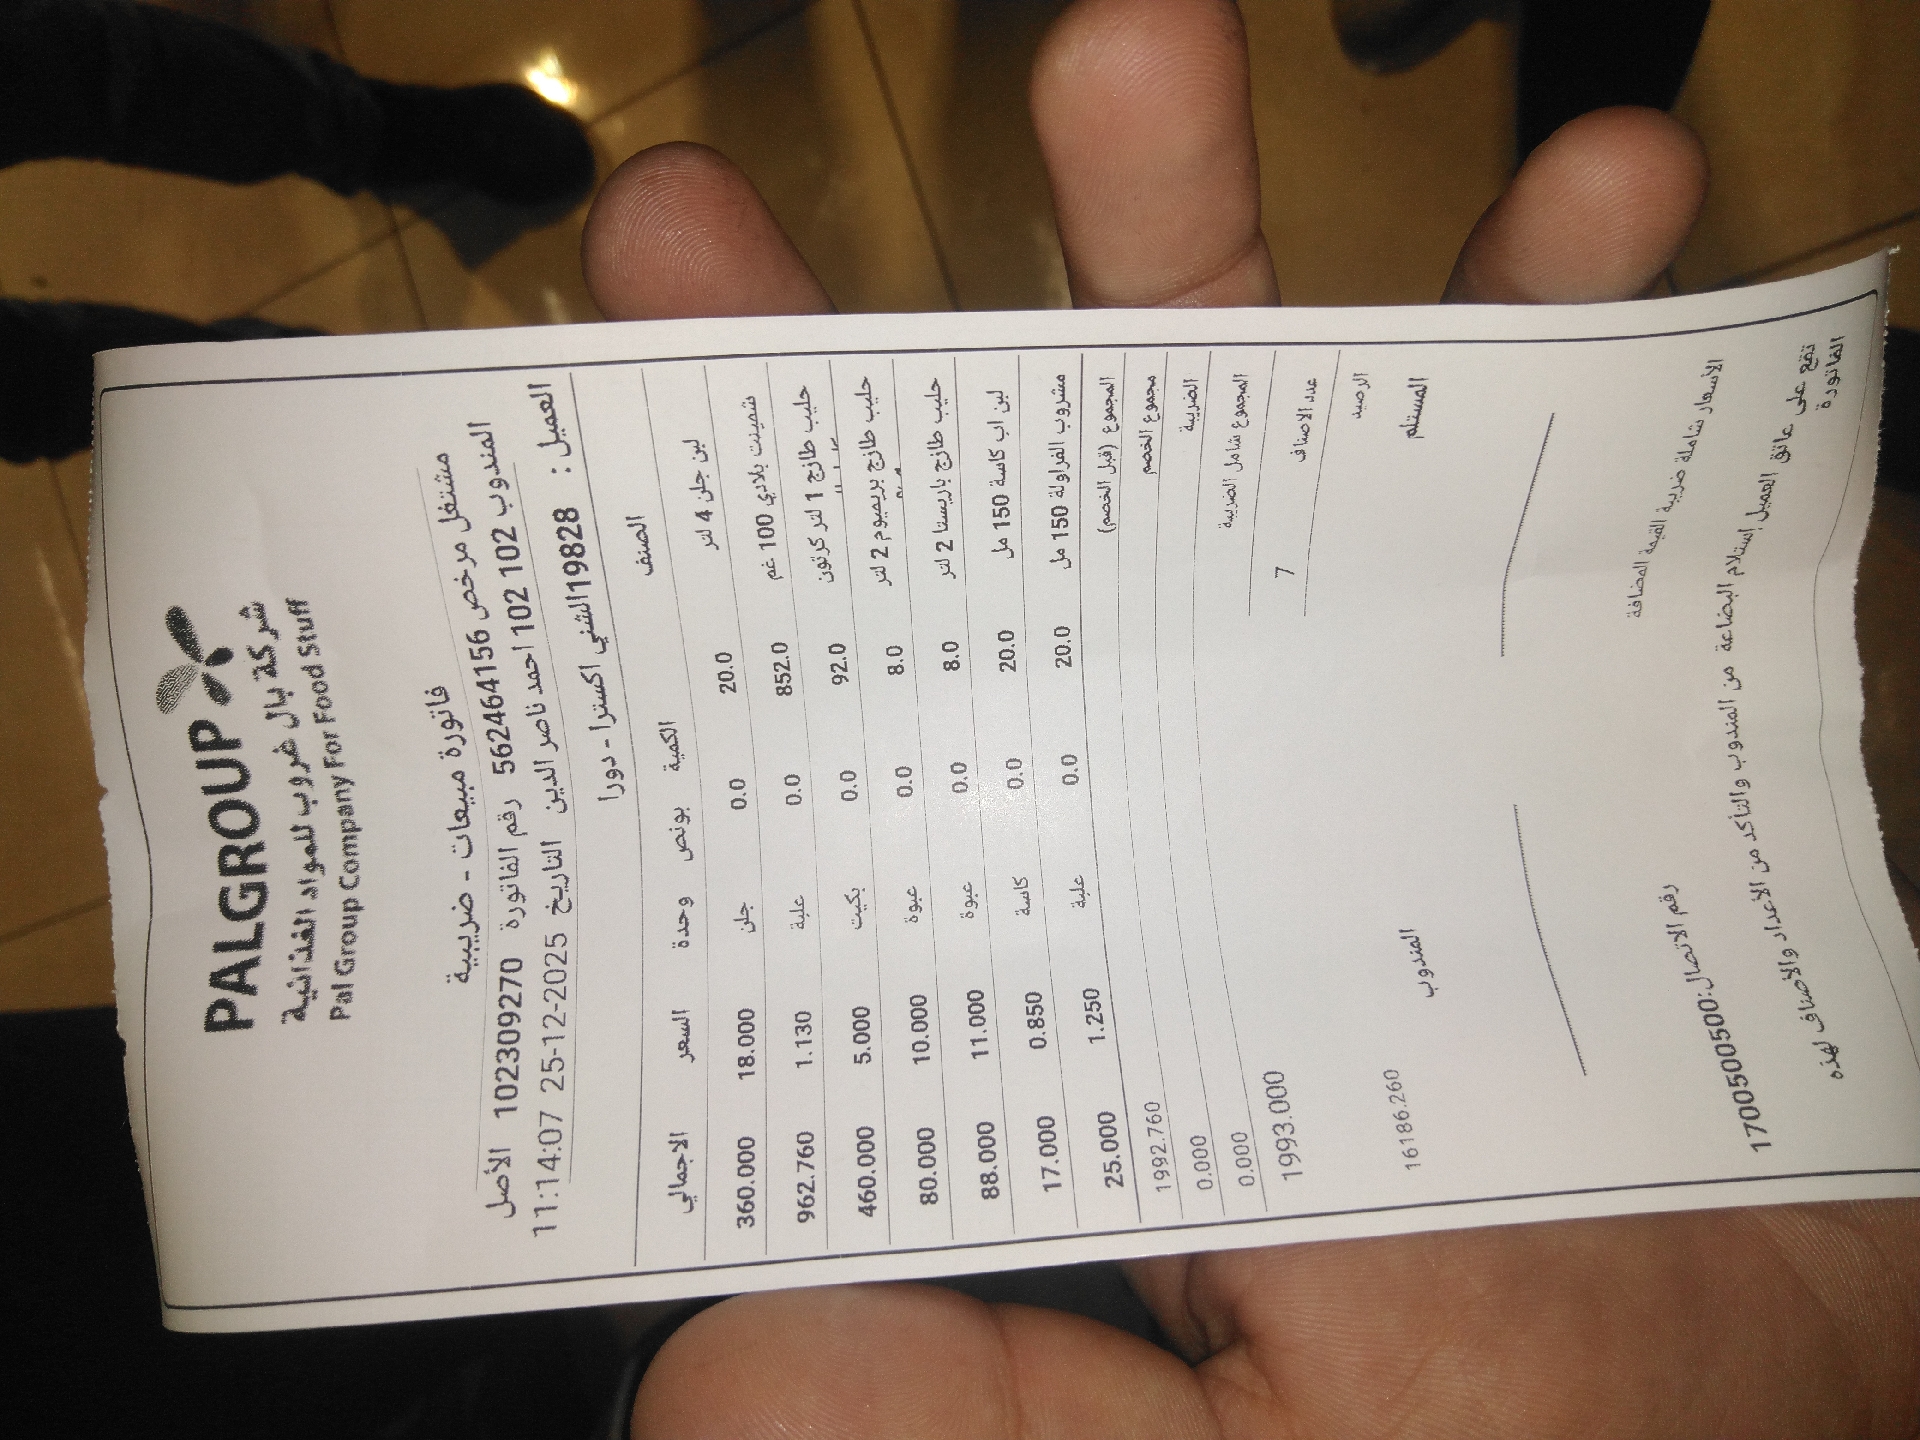 PALGROUP
شركة بال غروب للمواد الغذائية
Pal Group Company For Food Stuff
فاتورة مبيعات - ضريبية
مشتغل مرخص 562464156 رقم الفاتورة 102309270 الأصل
المندوب 102 102 احمد ناصر الدين التاريخ 25-12-2025 11:14:07
العميل : 119828الشني اكسترا - دورا
الصنف الكمية بونص وحدة السعر الاجمالي
لبن جلن 4 لتر 20.0 0.0 جلن 18.000 360.000
شمينت بلادي 100 غم 852.0 0.0 علبة 1.130 962.760
حليب طازج 1 لتر كرتون 92.0 0.0 بكيت 5.000 460.000
حليب طازج بريميوم 2 لتر 8.0 0.0 عبوة 10.000 80.000
حليب طازج باريستا 2 لتر 8.0 0.0 عبوة 11.000 88.000
لبن اب كاسة 150 مل 20.0 0.0 كاسة 0.850 17.000
مشروب الفراولة 150 مل 20.0 0.0 علبة 1.250 25.000
المجموع (قبل الخصم) 1992.760
مجموع الخصم 0.000
الضريبة 0.000
المجموع شامل الضريبة 1993.000
عدد الاصناف 7
الرصيد 16186.260
المستلم المندوب
الأسعار شاملة ضريبة القيمة المضافة
رقم الاتصال:1700500500
تقع على عاتق العميل إستلام البضاعة من المندوب والتأكد من الأعداد والأصناف لهذه
الفاتورة